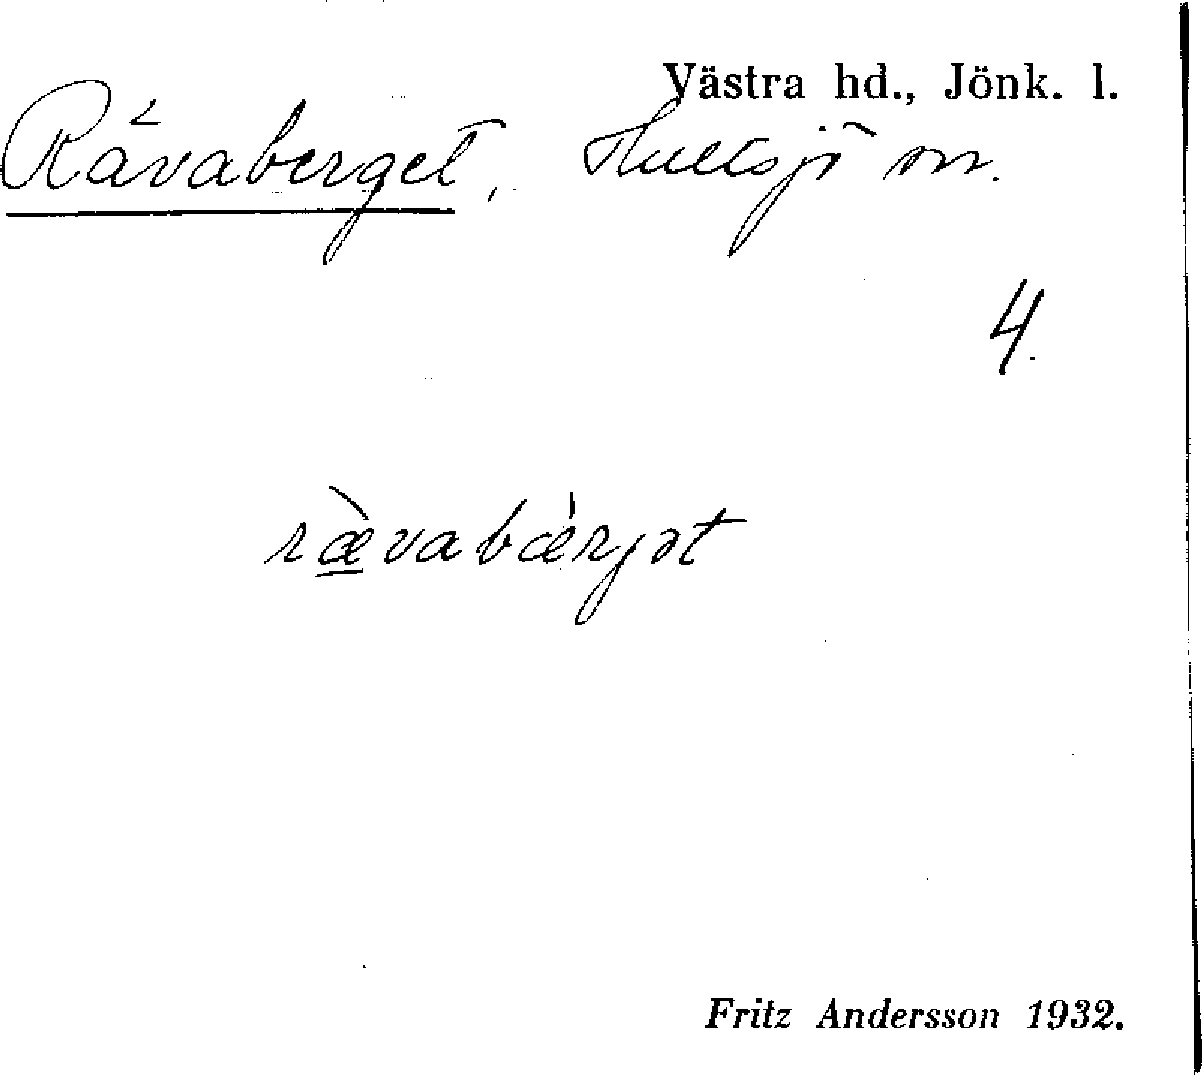 Västra hd., Jönk. l.
Rävaberget, Hultsjö sn.
4.
ræ̠̀vabǽrjət
Fritz Andersson 1932.